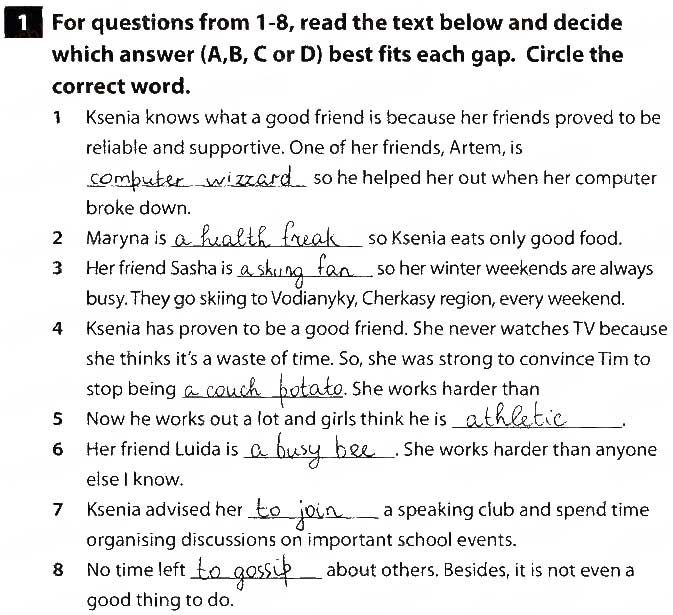 1 For questions from 1-8, read the text below and decide
which answer (A,B, C or D) best fits each gap. Circle the
correct word.
1 Ksenia knows what a good friend is because her friends proved to be
reliable and supportive. One of her friends, Artem, is
computer wizzard so he helped her out when her computer
broke down.
2 Maryna is a health freak so Ksenia eats only good food.
3 Her friend Sasha is a skiing fan so her winter weekends are always
busy. They go skiing to Vodianyky, Cherkasy region, every weekend.
4 Ksenia has proven to be a good friend. She never watches TV because
she thinks it's a waste of time. So, she was strong to convince Tim to
stop being a couch potato. She works harder than
5 Now he works out a lot and girls think he is athletic.
6 Her friend Luida is a busy bee. She works harder than anyone
else I know.
7 Ksenia advised her to join a speaking club and spend time
organising discussions on important school events.
8 No time left to gossip about others. Besides, it is not even a
good thing to do.